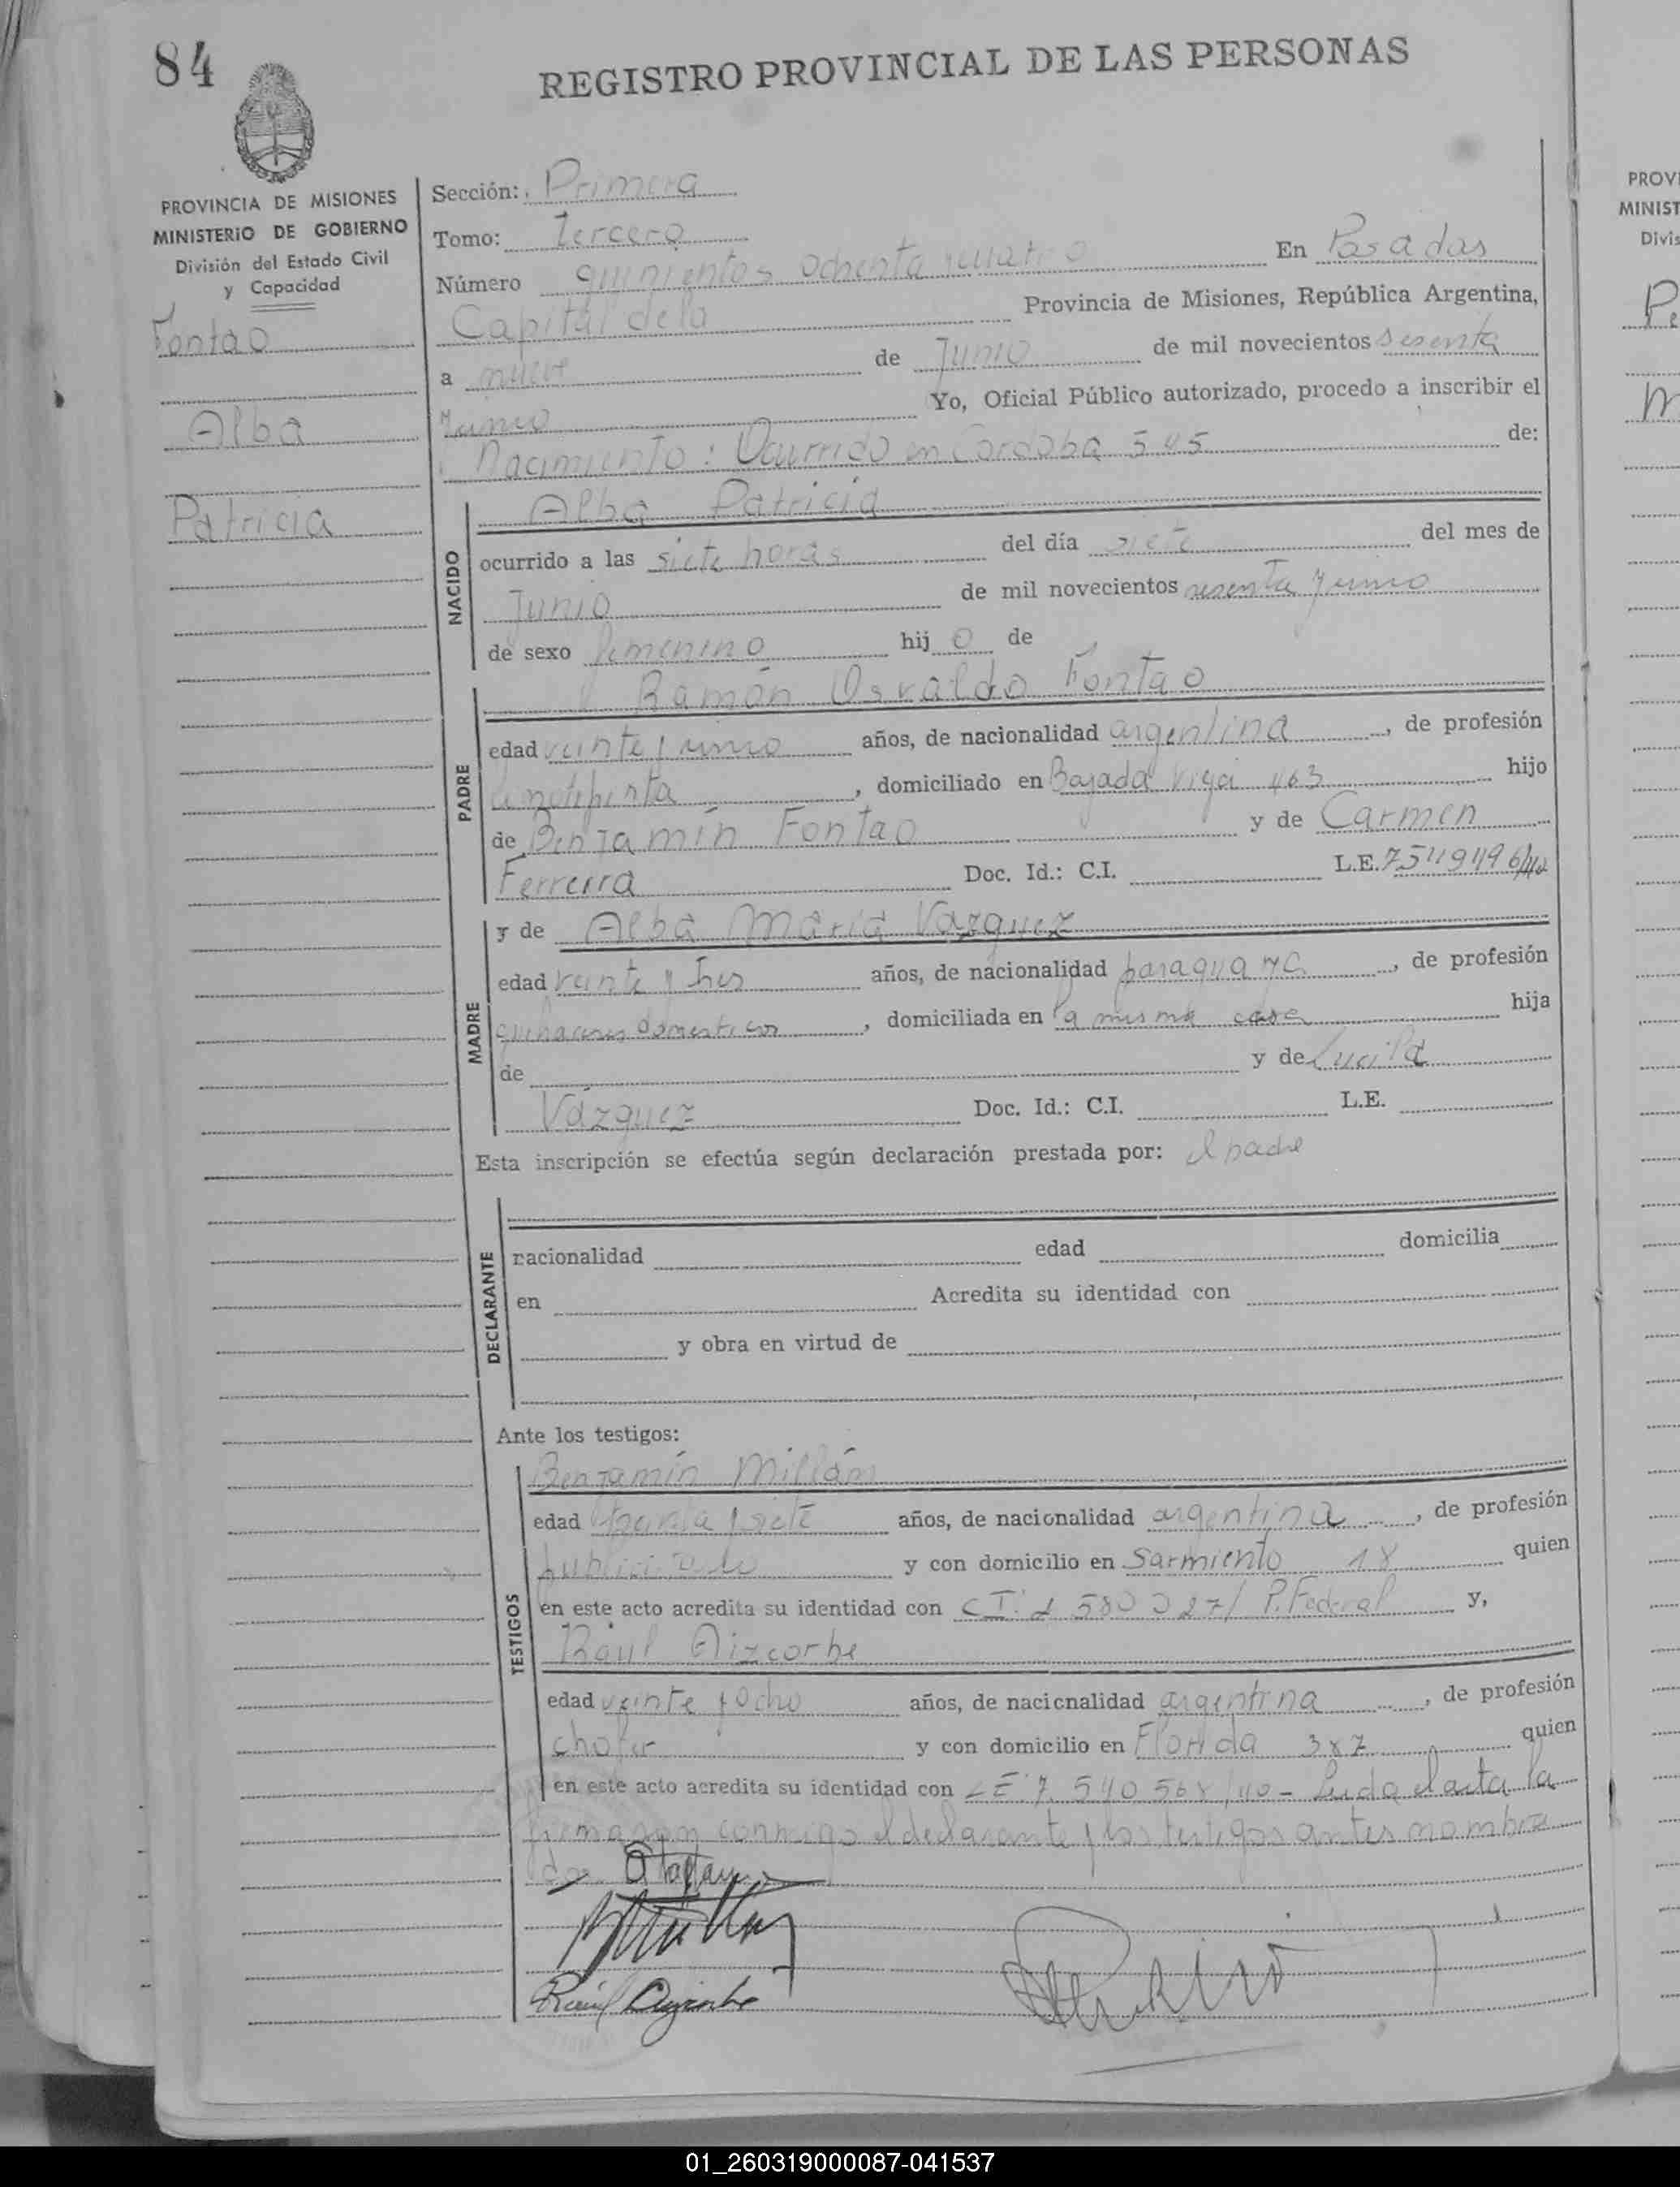 84
REGISTRO PROVINCIAL DE LAS PERSONAS
PROVINCIA DE MISIONES
MINISTERIO DE GOBIERNO
División del Estado Civil
y Capacidad
Fontao
Alba
Patricia
Sección: Primera
Tomo: Tercero
Número quinientos ochenta y cuatro En Posadas
Capital de la Provincia de Misiones, República Argentina,
a nueve de Junio de mil novecientos sesenta
y uno Yo, Oficial Público autorizado, procedo a inscribir el
Nacimiento: Ocurrido en Cordoba 545 de:
NACIDO
Alba Patricia
ocurrido a las siete horas del día siete del mes de
Junio de mil novecientos sesenta y uno
de sexo femenino hijo de
PADRE
Ramón Osvaldo Fontao
edad veinte y uno años, de nacionalidad argentina, de profesión
linotipista, domiciliado en Bajada Vieja 463 hijo
de Benjamín Fontao y de Carmen
Ferreira Doc. Id.: C.I. L.E. 7549496
MADRE
y de Alba María Vázquez
edad veinte y tres años, de nacionalidad paraguaya, de profesión
quehaceres domesticos, domiciliada en la misma casa hija
de y de Lucila
Vázquez Doc. Id.: C.I. L.E.
Esta inscripción se efectúa según declaración prestada por: el padre
DECLARANTE
nacionalidad edad domicilia
en Acredita su identidad con
y obra en virtud de
Ante los testigos:
TESTIGOS
Benjamín Millán
edad y siete años, de nacionalidad argentina, de profesión
y con domicilio en Sarmiento 18 quien
en este acto acredita su identidad con C.I. P. Federal y,
Raúl Aizcorbe
edad veinte y ocho años, de nacionalidad argentina, de profesión
chofer y con domicilio en Florida 387 quien
en este acto acredita su identidad con LE 7.540.568/40 - Leida el acta la
firmaron conmigo el declarante y los testigos antes nombra
dos.
Raúl Aizcorbe
PROVI
MINIST
Divis
01_260319000087-041537